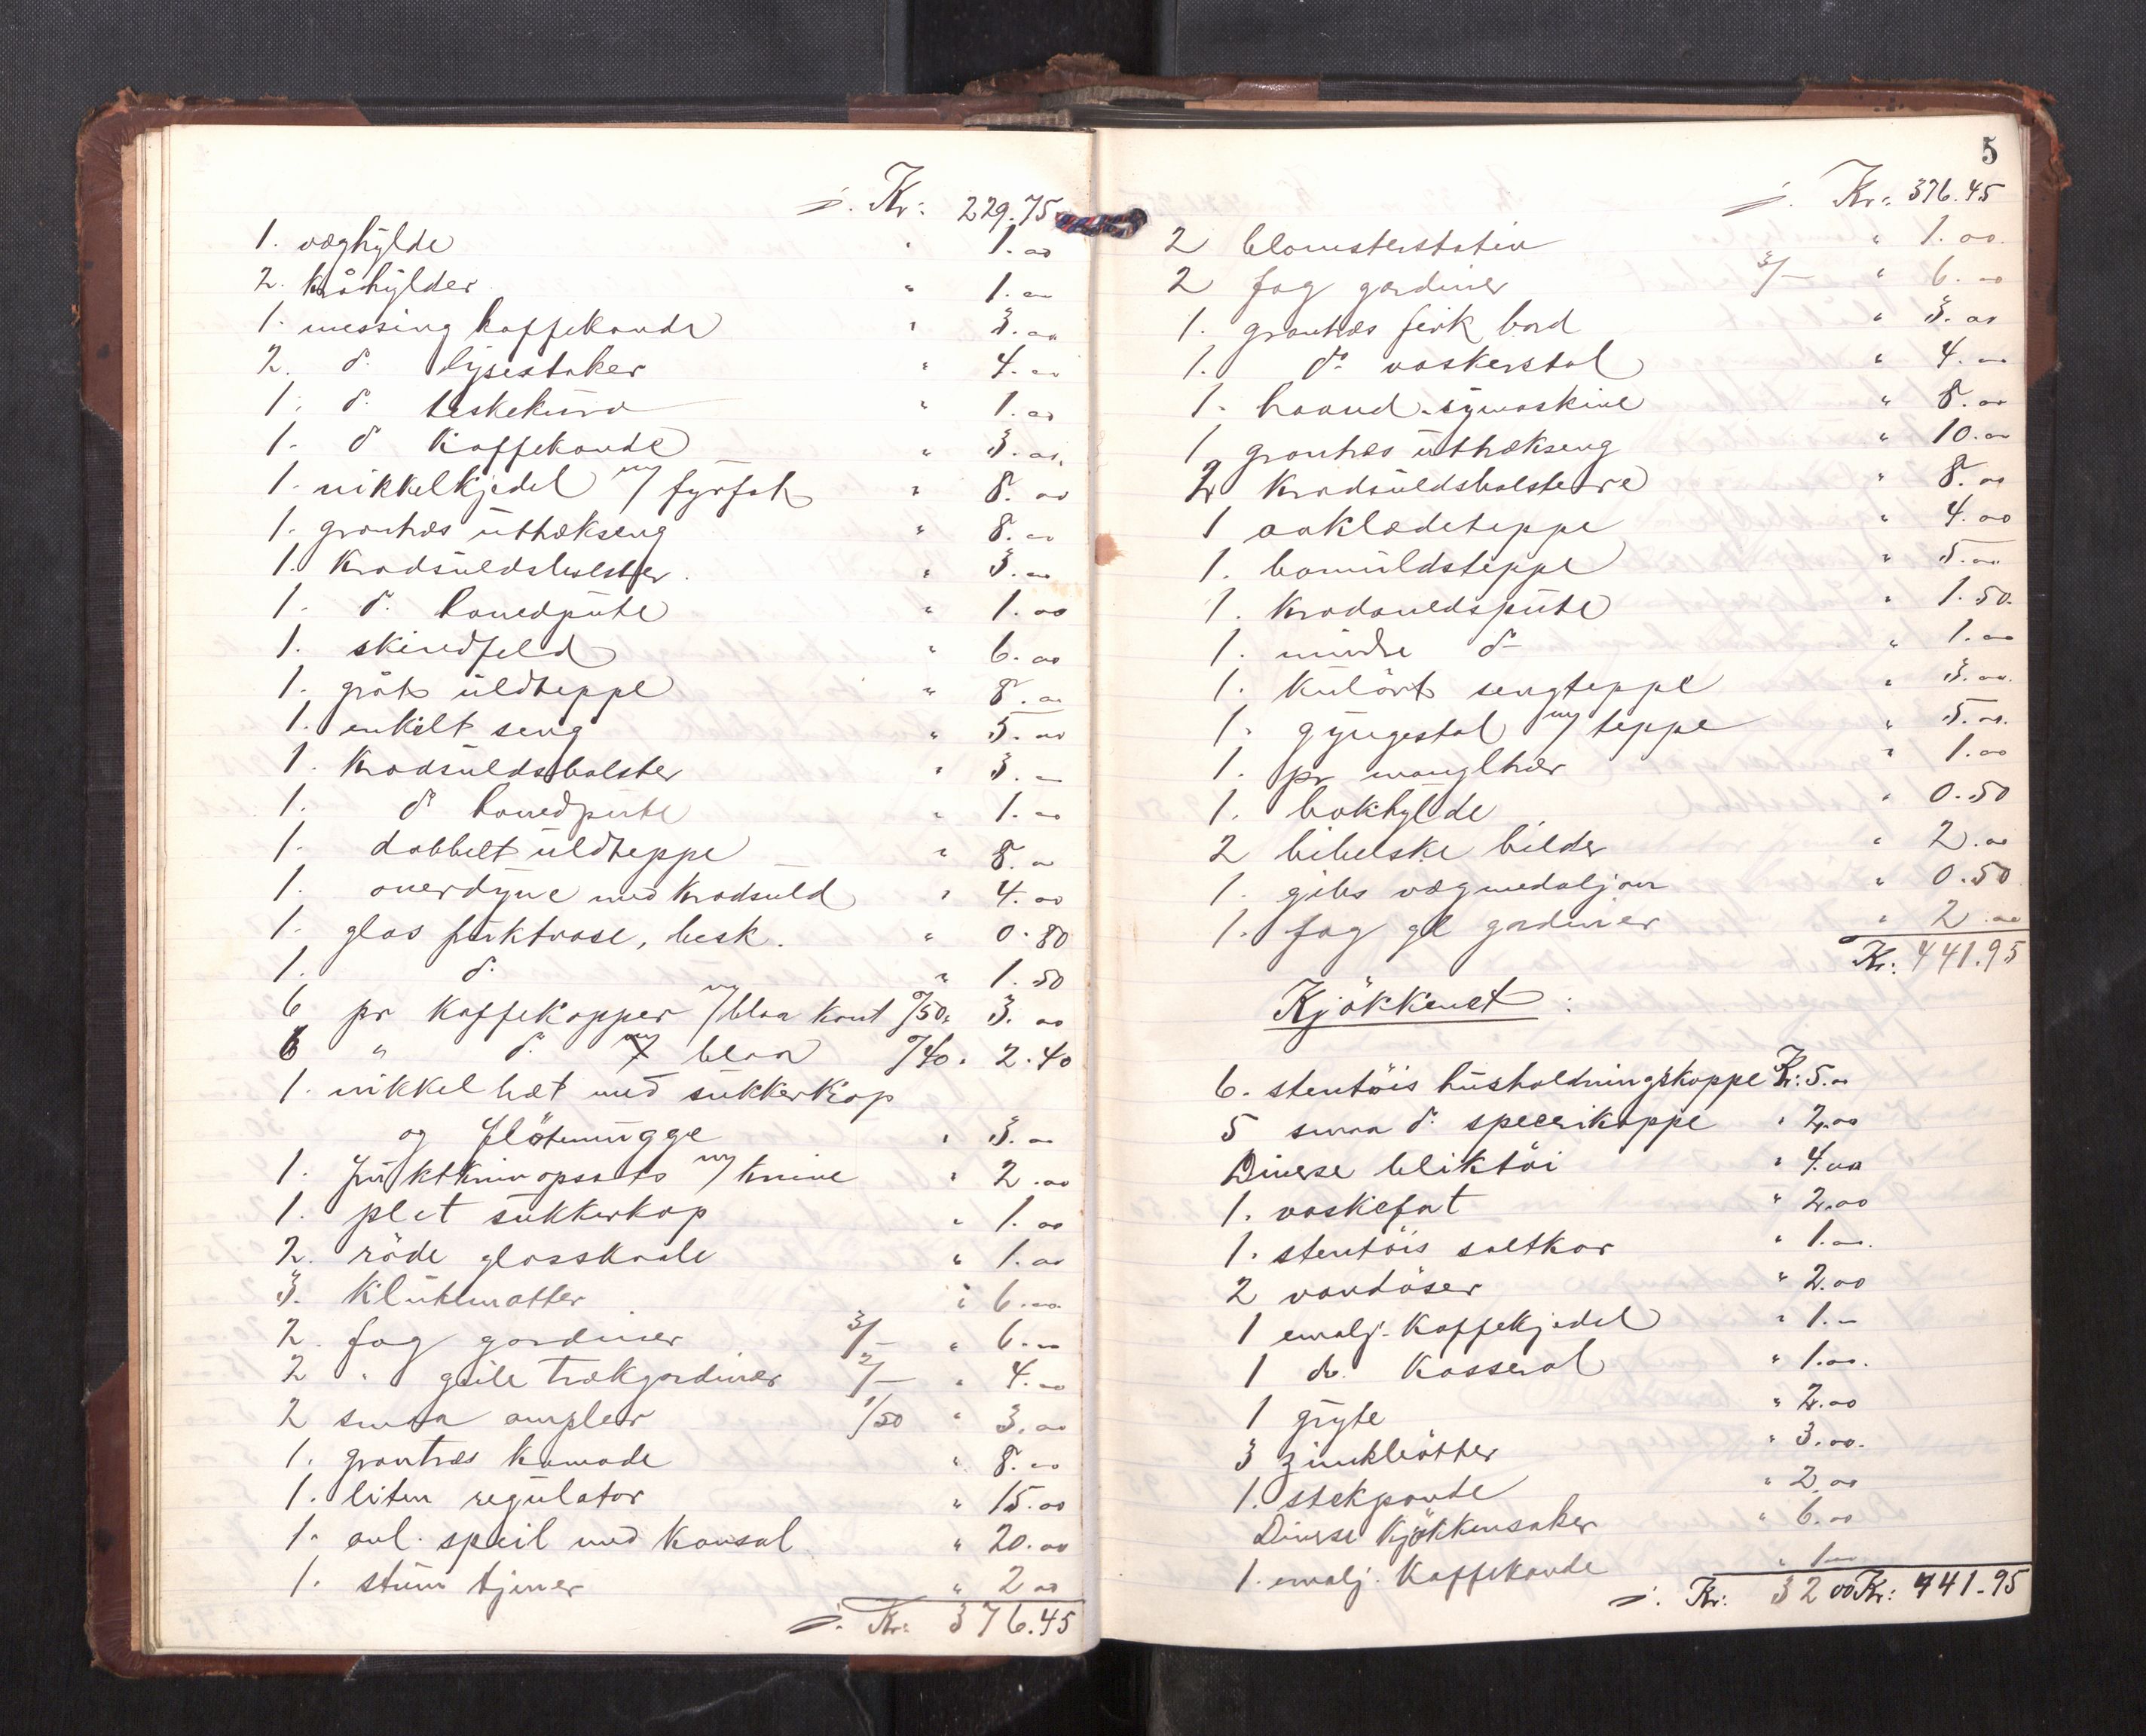 Kr: 229.75
1. væghylde " 1.00
2. kråhylder " 1.00
1. messing kaffekande " 3.00
2. do. lysestaker " 4.00
1. do. " 1.00
1. do kaffekande " 3.00
1. nikkelkjedel m/ fyrfat " 8.00
1. grantræs uttrækseng " 8.00
1. Kradsuldsbolster " 3.00
1. do. hovedpute " 1.00
1. skindfeld " 6.00
1. gråt uldteppe " 8.00
1. enkelt seng " 5.00
1. Kradsuldsbolster " 3.00
1. do hovedpute " 1.00
1. dobbelt uldteppe " 8.00
1. overdyne med Kradsuld " 4.00
1. glas fruktvase, besk. " 0.80
1. do. " 1.50
6 pr kaffekopper m/ blaa kant 0/50 " 3.00
6 " do. m/ blaa 0/40 " 2.40
1. nikkel bræt med sukkerkop
og flötemugge " 3.00
1. fruktknivopsats m/ knive " 2.00
1. plet sukkerkop " 1.00
2. röde glasskaale " 1.00
3. Klutematter " 6.00
2. fag gardiner 3/- " 6.00
2 " gule trækgardiner 2/- " 4.00
2 smaa ampler 1/50 " 3.00
1. grantræs komode " 8.00
1. liten regulator " 15.00
1. avl. speil med konsol " 20.00
1. stum tjener " 2.00
Kr: 376.45
5
Kr: 376.45
2 blomsterstativ " 1.00
2 fag gardiner 3/- " 6.00
1. grantræs firk bord " 3.00
1. do vaskerstol " 4.00
1. haand-symaskine " 8.00
1 grantræs uttrækseng " 10.00
2 Kradsuldsbolstere " 8.00
1 aaklædeteppe " 4.00
1. bomuldsteppe " 5.00
1. Kradsuldspute " 1.50
1. mindre do " 1.00
1. Kulört sengteppe " 3.00
1. gyngestol m/ teppe " 5.00
1. pr mangltrær " 1.00
1. bokhylde " 0.50
2 bibelske bilder " 2.00
1. gibs vægmedaljon " 0.50
1. fag gl gardiner " 2.00
Kr: 441.95
Kjökkenet:
6. stentöis husholdningskoppe Kr: 5.00
5 smaa do. speserikoppe " 2.00
Diverse bliktöi " 4.00
1. vaskefat " 2.00
1. stentöis saltkar " 1.00
2 vandöser " 2.00
1 emalj. Kaffekjedel " 1.-
1 do. Kasserol " 1.00
1 gryte " 2.00
3 zinkbötter " 3.00
1. stekpande " 2.00
Diverse Kjökkensaker " 6.00
1. emalj. Kaffekande " 1.00
Kr: 32 00 Kr: 441.95